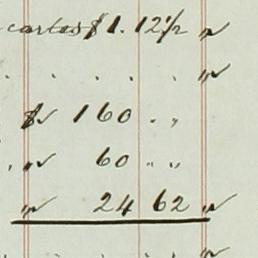 cartas $1.12½ "
. . . . . "
$" 160 . "
. " 60 " "
" 24 62 "
"